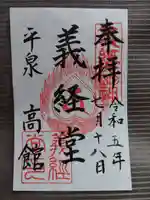 奉拝
令和五年
七月十八日
義経堂
平泉
高館